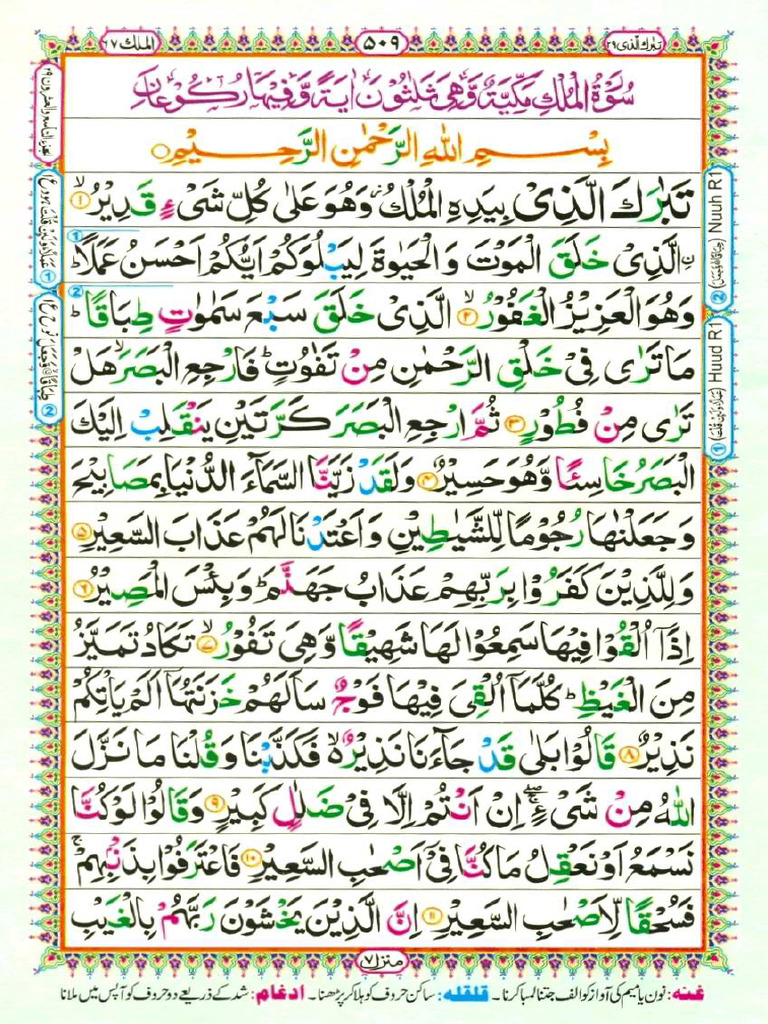 تبٰرك الذی ٢٩
٥٠٩
الملك ٦٧
سُوْرَةُ الْمُلْكِ مَكِّيَّةٌ وَّهِيَ ثَلٰثُوْنَ اٰيَةً وَّفِيْهَا رُكُوْعَانِ
بِسْمِ اللهِ الرَّحْمٰنِ الرَّحِيْمِ
تَبٰرَكَ الَّذِیْ بِيَدِهِ الْمُلْكُ ؗ وَهُوَ عَلٰی كُلِّ شَیْءٍ قَدِيْرُ ۙ﴿١﴾
نِ الَّذِیْ خَلَقَ الْمَوْتَ وَالْحَيٰوةَ لِيَبْلُوَكُمْ اَيُّكُمْ اَحْسَنُ عَمَلًا ؕ
وَهُوَ الْعَزِيْزُ الْغَفُوْرُ ۙ﴿٢﴾ الَّذِیْ خَلَقَ سَبْعَ سَمٰوٰتٍ طِبَاقًا ؕ
مَا تَرٰی فِیْ خَلْقِ الرَّحْمٰنِ مِنْ تَفٰوُتٍ ؕ فَارْجِعِ الْبَصَرَ ۙ هَلْ
تَرٰی مِنْ فُطُوْرٍ ﴿٣﴾ ثُمَّ ارْجِعِ الْبَصَرَ كَرَّتَيْنِ يَنْقَلِبْ اِلَيْكَ
الْبَصَرُ خَاسِئًا وَّهُوَ حَسِيْرٌ ﴿٤﴾ وَلَقَدْ زَيَّنَّا السَّمَآءَ الدُّنْيَا بِمَصَابِيْحَ
وَجَعَلْنٰهَا رُجُوْمًا لِّلشَّيٰطِيْنِ وَاَعْتَدْنَا لَهُمْ عَذَابَ السَّعِيْرِ ﴿٥﴾
وَلِلَّذِيْنَ كَفَرُوْا بِرَبِّهِمْ عَذَابُ جَهَنَّمَ ؕ وَبِئْسَ الْمَصِيْرُ ﴿٦﴾
اِذَآ اُلْقُوْا فِيْهَا سَمِعُوْا لَهَا شَهِيْقًا وَّهِیَ تَفُوْرُ ۙ﴿٧﴾ تَكَادُ تَمَيَّزُ
مِنَ الْغَيْظِ ؕ كُلَّمَآ اُلْقِیَ فِيْهَا فَوْجٌ سَاَلَهُمْ خَزَنَتُهَآ اَلَمْ يَاْتِكُمْ
نَذِيْرٌ ﴿٨﴾ قَالُوْا بَلٰی قَدْ جَآءَنَا نَذِيْرٌ ۙ فَكَذَّبْنَا وَقُلْنَا مَا نَزَّلَ
اللهُ مِنْ شَیْءٍ ۚۖ اِنْ اَنْتُمْ اِلَّا فِیْ ضَلٰلٍ كَبِيْرٍ ﴿٩﴾ وَقَالُوْا لَوْ كُنَّا
نَسْمَعُ اَوْ نَعْقِلُ مَا كُنَّا فِیْٓ اَصْحٰبِ السَّعِيْرِ ﴿١٠﴾ فَاعْتَرَفُوْا بِذَنْۢبِهِمْ ۚ
فَسُحْقًا لِّاَصْحٰبِ السَّعِيْرِ ﴿١١﴾ اِنَّ الَّذِيْنَ يَخْشَوْنَ رَبَّهُمْ بِالْغَيْبِ
② Nuuh R1
① Huud R1
منزل ٧
غنه: نون یا میم کی آواز کو الف جتنا لمبا کرنا۔ قلقله: ساکن حروف کو ہلا کر پڑھنا۔ ادغام: شد کے ذریعے دو حروف کو آپس میں ملانا